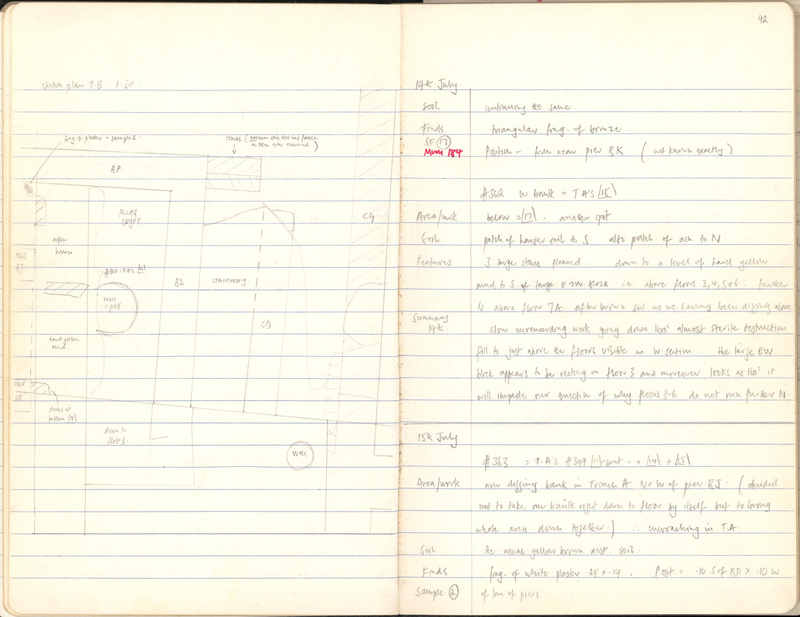 sketch plan T.B 1:50.
frag of plaster = sample 2
stones (
BP
PILLAR
CRYPT
CG
PIER
BJ
B2
causeway
hard yellow
mud
C)
PIER
stones at
bottom
down to
floor 3
Well
92.
14th July
Soil continuing the same.
Finds triangular frag. of bronze
SF 17
Musn 184 Position - from near pier BK (not known exactly)
#362 W baulk = TA's 15
Area/work below 17. another
Soil patch of harder soil to S also patch of ash to N
Features 3 large stones planned. down to a level of hard yellow
mud to S of large E-W block i.e. above floors 3, 4, 5 & 6. Further
N above floor 7A after brown soil as we having been digging above
Summary
14th slow unrewarding work going down thro' almost sterile destruction
fill to just above the floors visible in W. section the large EW
block appears to be resting on floor 3 and moreover looks as tho' it
will impede our question of why floors 3-6 do not run further N.
15th July
#363 = T.A's #349
Area/work now digging baulk in Trench A. N & W of pier BJ. (decided
not to take our baulk right down to floor by itself but to bring
whole area down together.) ∴ encroaching in T.A.
Soil the usual yellow brown dest. soil
Finds frag. of white plaster .28 x .14. Post = .10 S of BP x .10 W
Sample 2 of line of piers.